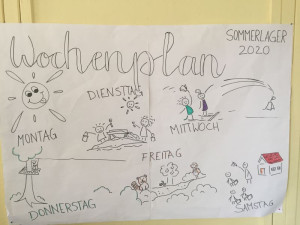 Wochenplan
SOMMERLAGER
2020
DIENSTTAG
MITTWOCH
MONTAG
FREITAG
DONNERSTAG
SAMSTAG